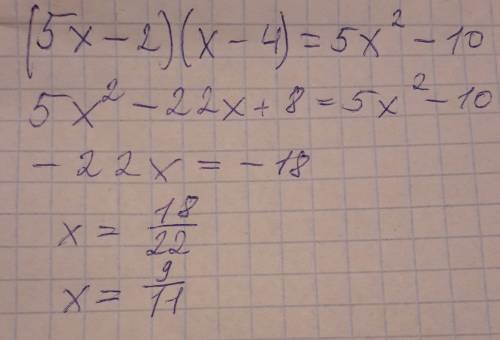 (5x - 2)(x - 4) = 5x² - 10
5x² - 22x + 8 = 5x² - 10
- 22x = - 18
x = 18/22
x = 9/11